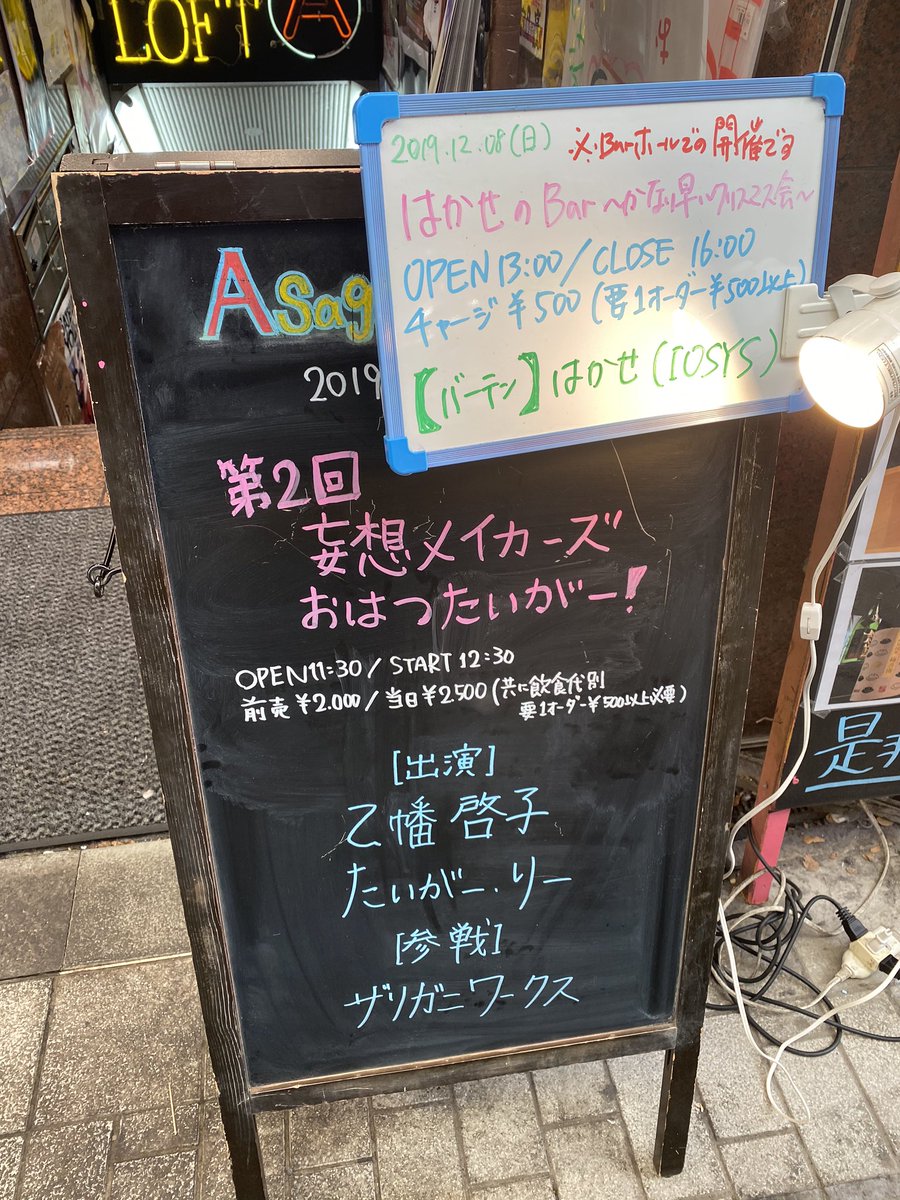 LOFT A
2019.12.08(日) ※Barホールでの開催です
はかせのBar ～かなり早いクリスマス会～
OPEN 13:00 / CLOSE 16:00
チャージ ¥500 (要1オーダー¥500以上)
【バーテン】はかせ (IOSYS)
Asag
2019
第2回
妄想メイカーズ
おはつたいがー!
OPEN 11:30 / START 12:30
前売 ¥2.000 / 当日 ¥2500 (共に飲食代別
要1オーダー¥500以上必要)
[出演]
乙幡 啓子
たいがー.リー
[参戦]
ザリガニワークス
是非